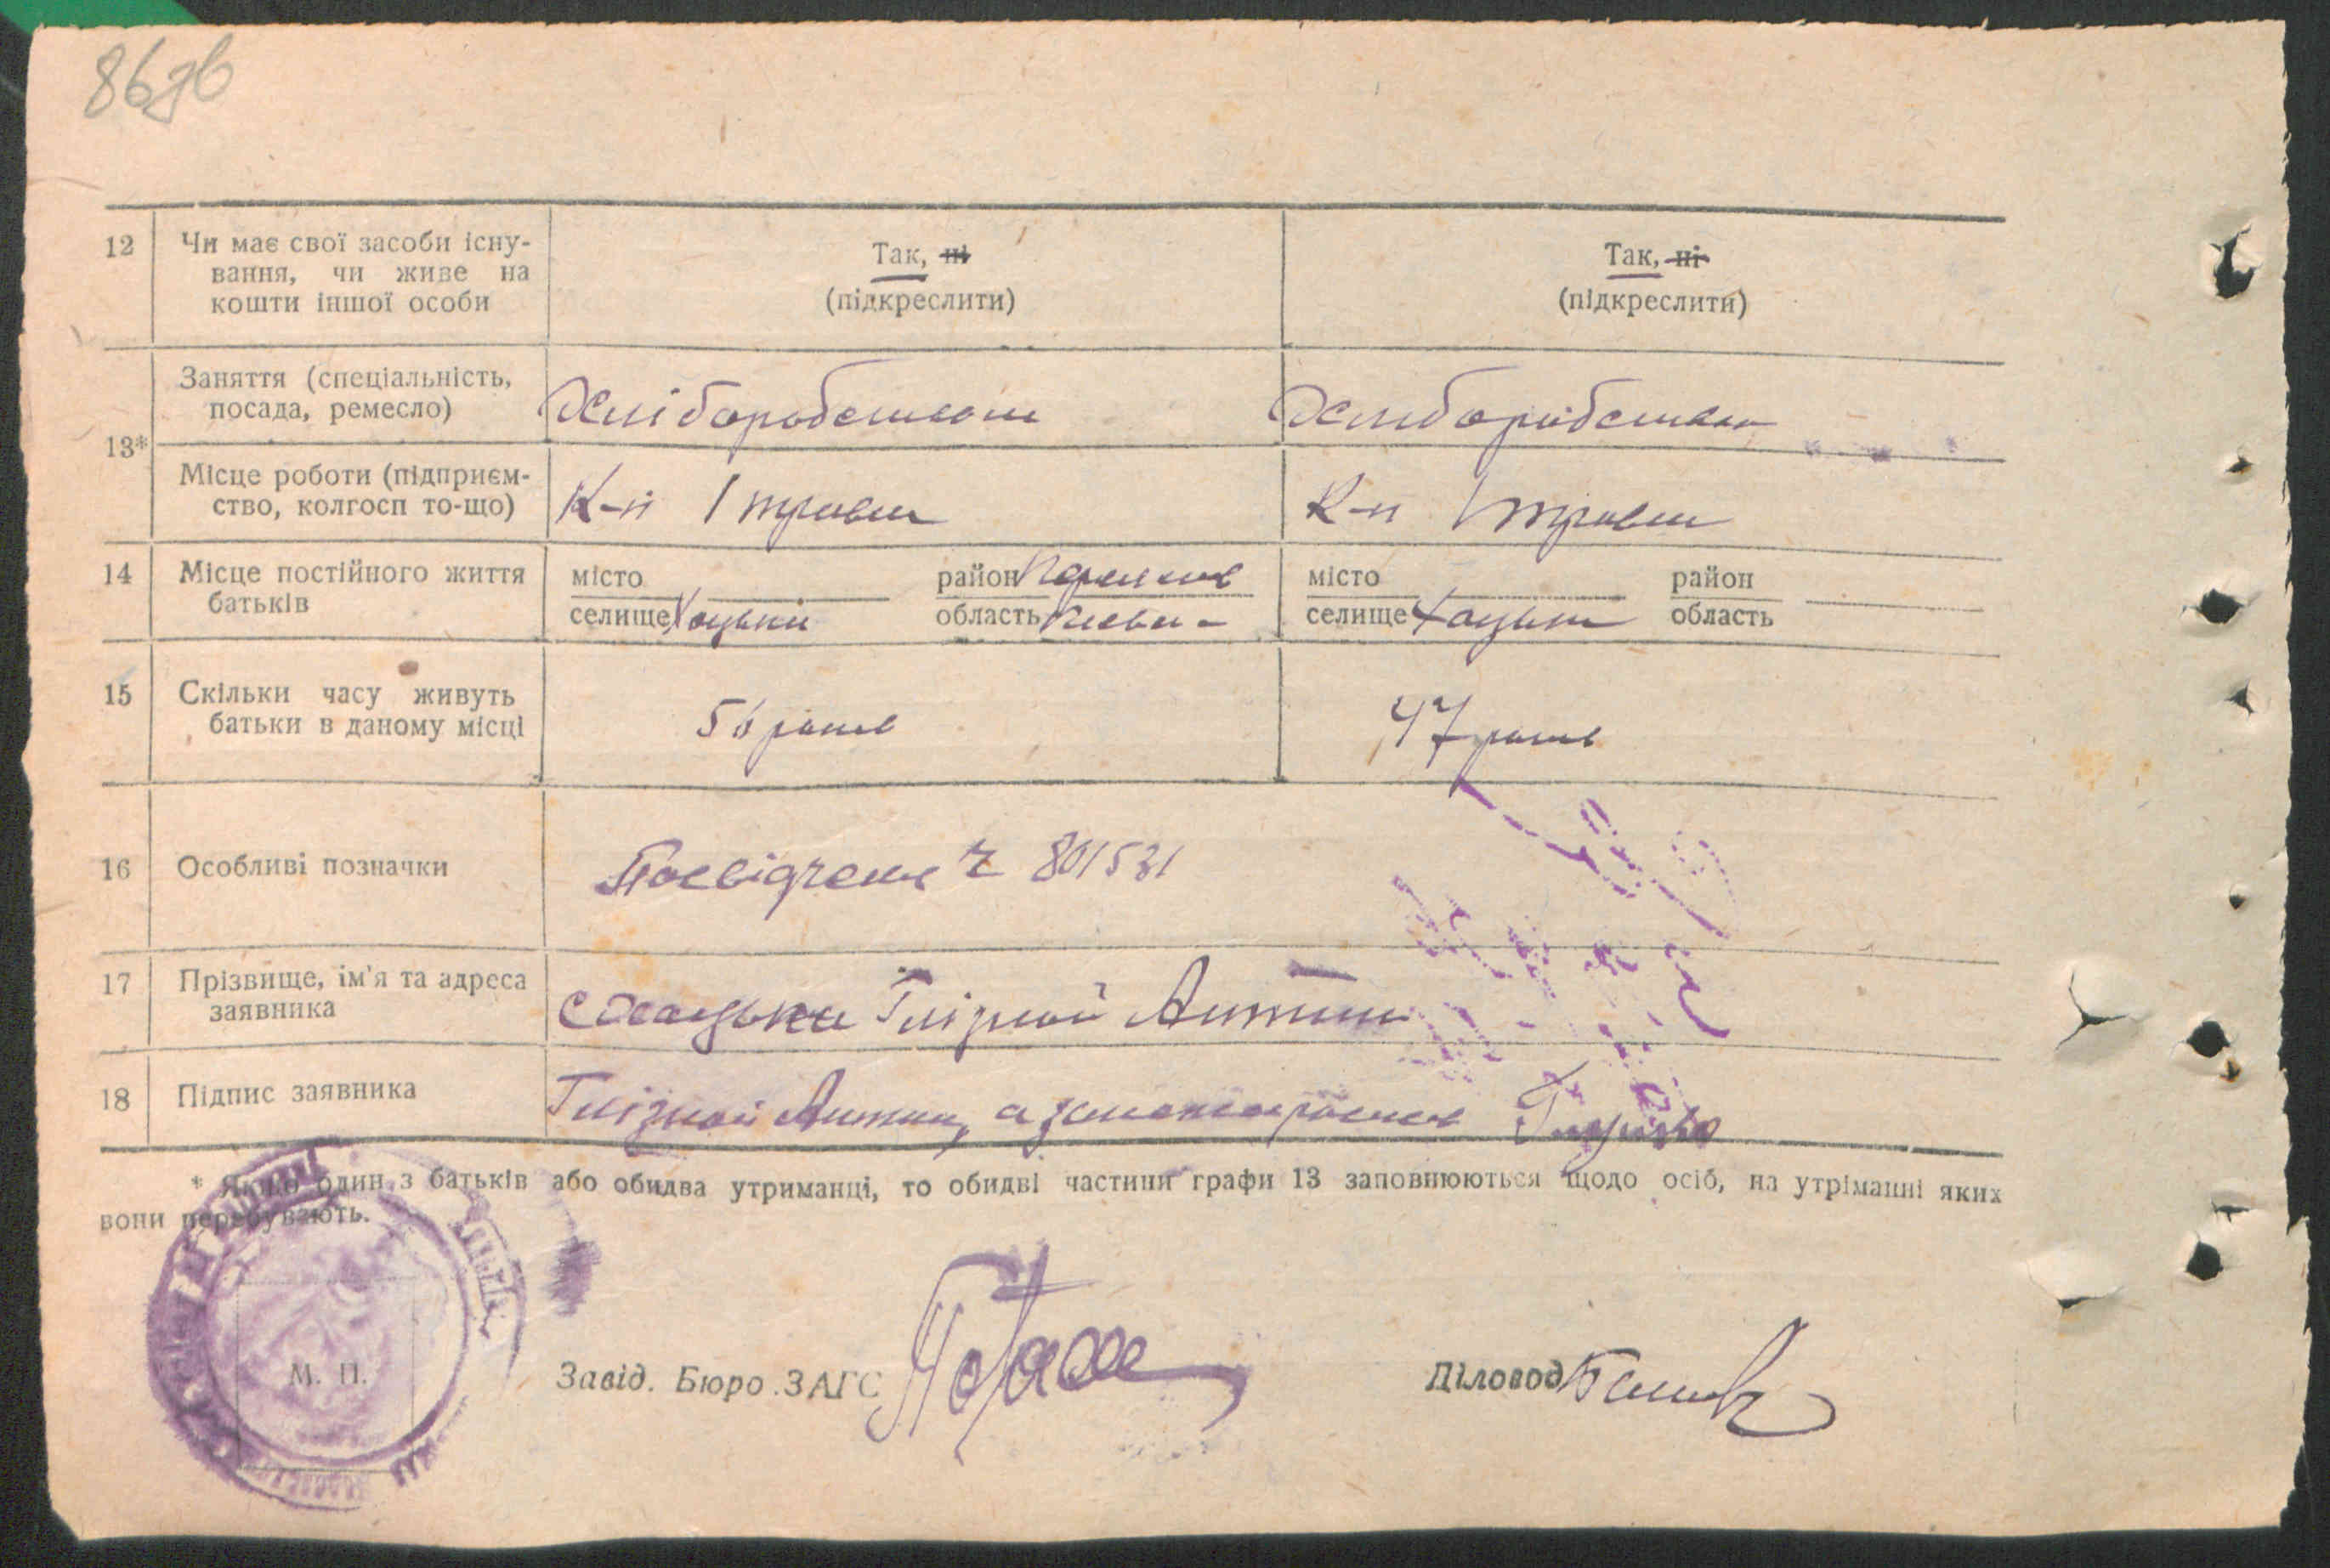 86зв
12 Чи має свої засоби існу-
вання, чи живе на
кошти іншої особи
Так, ні
(підкреслити)
Так, ні
(підкреслити)
13*
Заняття (спеціальність,
посада, ремесло)
Хліборобством
Хліборобством
Місце роботи (підприєм-
ство, колгосп то-що)
К-п 1 травня
К-п 1 травня
14 Місце постійного життя
батьків
місто район
селище Хоцьки область Київськ
місто район
селище Хоцьки область
15 Скільки часу живуть
батьки в даному місці
56 років
47 років
16 Особливі позначки
Посвідченя № 801531
17 Прізвище, ім'я та адреса
заявника
с Хоцьки Глізной Антон
18 Підпис заявника
Глізной Антон, а
* Якщо один з батьків або обидва утриманці, то обидві частини графи 13 заповнюються щодо осіб, на утріманні яких
вони перебувають.
М. П.
Завід. Бюро ЗАГС
Діловод